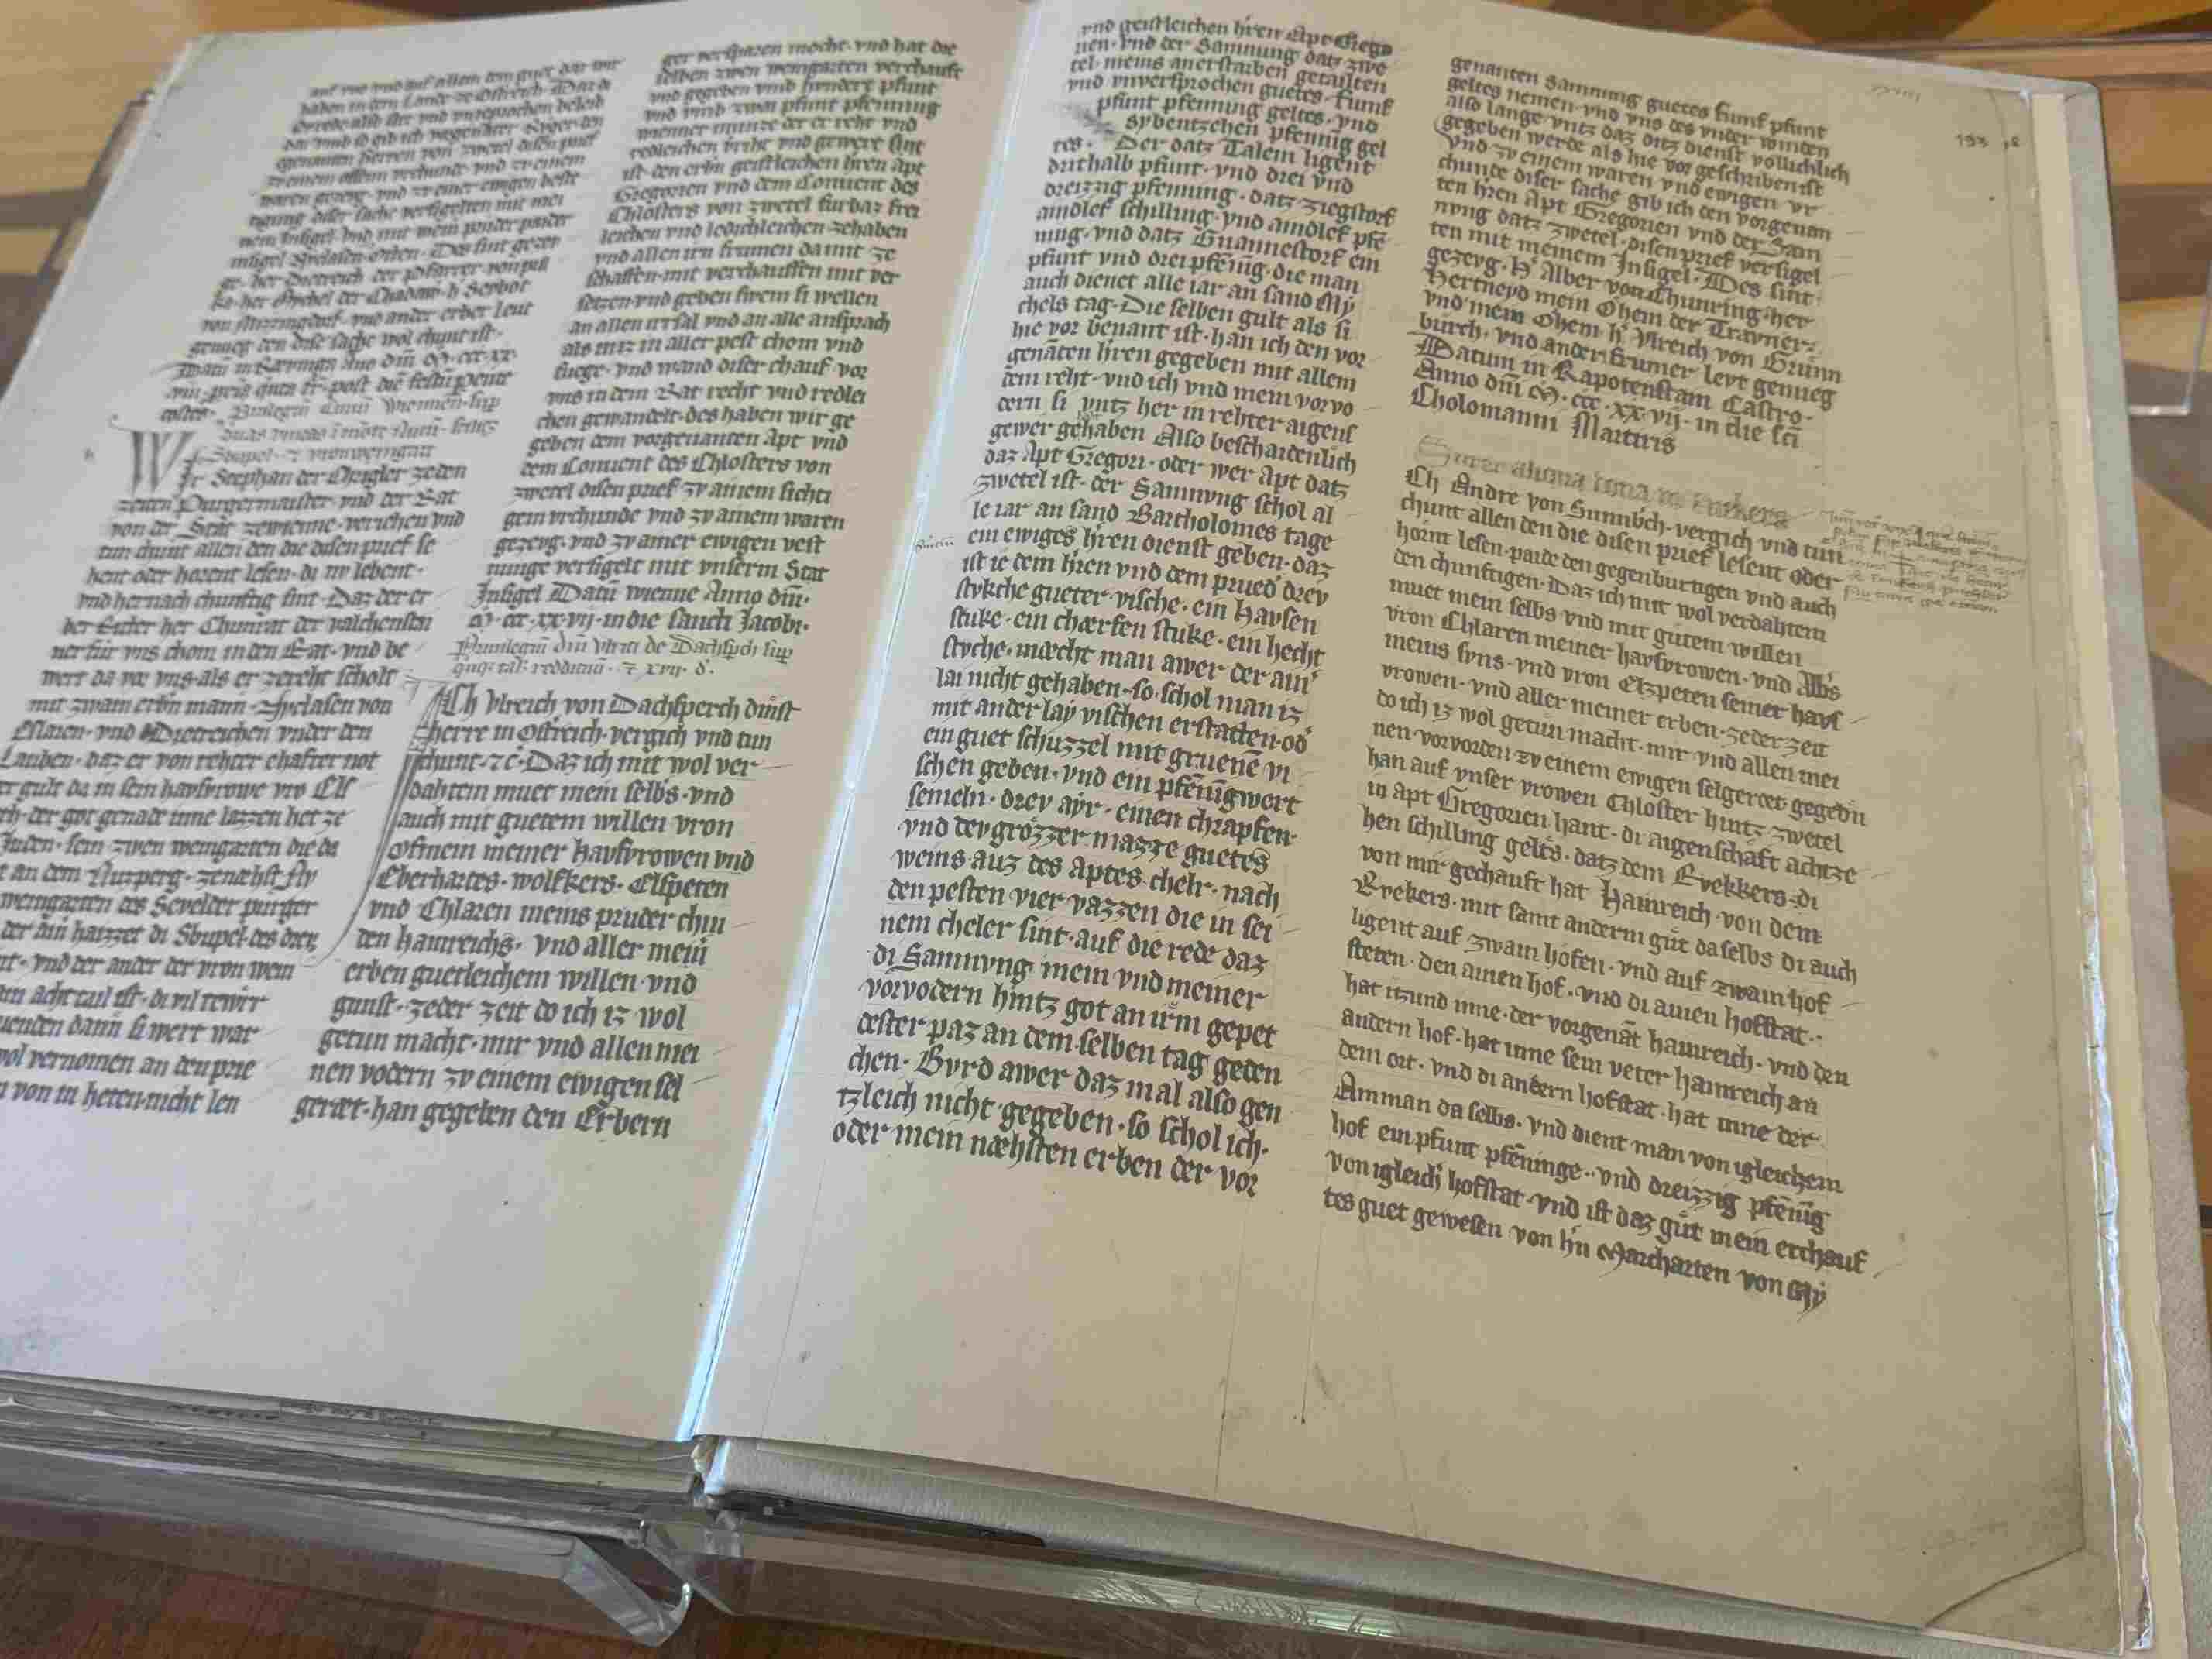 auf vns vnd auf allem dem guet daz wir
haben in dem Lande ze Osterreich. Daz di
dar vmb so gib ich
egenanten herren von zwetel disen prief
ze einem offem vrchunde vnd zv einem
waren gezevg. vnd zv einer ewigen veste
tigung diser sache versigelten mit mei
nem Insigel. vnd mit mein prueder paider
insigel Des sint gezev
ge. her Dietreich der pharrer von
vnd ander erber leut
genueg den dise sache wol chunt ist.
Wir Stephan der Chrigler ze den
zeiten Purgermaister. vnd der Rat
von der Stat zewienne. veriehen vnd
tun chunt allen den die disen prief se
hent oder horent lesen. di nv lebent.
vnd hernach chunftig sint. Daz der er
ber Ritter her Chunrat der valchenstei
ner für vns chom in den Rat. vnd be
wert da vor vns. als er ze reht scholt
mit zwain erbn mann. Nyclasen von
Eslarn. vnd Dietreichen vnder den
Lauben. daz er von rehter ehafter not
er gult da in sein havsvrowe vro Els
der got genade inne lazzen het ze
Juden. sein zwen weingarten die da
t an dem Nuzperg. zenæhst
weingarten des Sevelder purger
der ain haizzet di Sbupel. des drey
nt. vnd der ander der vron wein
ain acht tail ist. di vil tewir
wol vernomen an den prie
n von in heten. nicht len
ger versparen mocht. vnd hat die
selben zwen weingarten verchauft
vnd gegeben vmb hundert phunt
vnd vmb zwai pfunt pfenning
wienner munze der er reht vnd
redleichen veriht vnd gewert sint
ist. den erbn geistleichen hren apt
Gregorien vnd dem Conuent des
Chlosters von zwetel furbaz frei
leichen vnd ledichleichen. zehaben
vnd allen irn frumen da mit ze
schaffen. mit verchauffen mit ver
setzen. vnd geben swem si wellen
an allen irsal vnd an alle ansprach
als iniz in aller pest chom vnd
fuege. vnd wand diser chauf vor
vns in dem Rat recht vnd redlei
chen gewandelt. des haben wir ge
geben dem vorgenanten apt vnd
dem Conuent des Chlosters von
zwetel disen prief zv ainem sichti
gem vrchunde vnd zv ainem waren
gezevg. vnd zv ainer ewigen vest
nunge versigelt mit vnserm Stat
Insigel Datū wienne Anno dm̄.
M. ccc. xx. vij. in die sancti Jacobi.
Priuilegiū dn̄i vlrici de Dachsperch sup
qnqꝫ tal. reddituū. ⁊ xvij. d.
Ich vlreich von Dachsperch dinst
herre in Osterreich. vergich vnd tun
chunt. ⁊c̄. Daz ich mit wol ver
dahtem muet mein selbs. vnd
auch mit guetem willen vron
Ofmein meiner havsvrowen vnd
Eberhartes. wolfkers. Elspeten
vnd Chlaren meins prüder chin
den hainreichs. vnd aller mein
erben guetleichem willen. vnd
gunst. zeder zeit do ich iz wol
getun macht. mir vnd allen mei
nen vodern zv einem ewigen sel
geræt. han gegeben den Erbern
vnd geistleichen hren Apt Grego
rien. vnd der Samnung datz zwe
tel. meins anerstarben getailten
vnd vnversprochen guetes. Fumf
pfunt pfenning geltes. vnd
sybentzehen pfennig gel
tes. Der datz Talern ligent
drithalb pfunt. vnd drei vnd
dreizzig pfenning. datz ziegstorf
aindlef schilling. vnd aindlef pfe
ning. vnd datz Guannestorf ein
pfunt vnd drei pfenig. die man
auch dienet alle iar an sand My
chels tag. Die selben gult als si
hie vor benant ist. han ich den vor
genāten hren gegeben mit allem
dem reht. vnd ich vnd mein vorvo
dern si vntz her in rehter aigens
gewer gehaben Also beschaidenlich
daz Apt Gregori. oder wer Apt datz
zwetel ist. der Samnvng schol al
le iar an sand Bartholomes tage
ein ewiges hren dienst geben. daz
ist ie dem hren vnd dem prued drey
stvkche gueter vische. ein Havsen
stuke. ein chærfen stuke. ein hecht
styche. mæcht man awer der ain
lai nicht gehaben. so schol man iz
mit ander lay vischen erstatten. od
ein guet schuzzel mit gruenē vi
schen geben. vnd ein pfenigwert
semeln. drey ayr. einen chrapfen.
vnd der grözzer mazze guetes
weins auz des aptes chelr. nach
den pesten vier vazzen die in sei
nem cheler sint. auf die rede daz
di Samnvng mein vnd meiner
vorvodern hintz got an irm gepet
dester paz an dem selben tag geden
chen. Wurd awer daz mal also gen
tzleich nicht gegeben. so schol ich.
oder mein næhsten erben der vor
genanten Samnung guetes fumf pfunt
geltes nemen. vnd vns des vnder winden
also lange vntz daz ditz dienst vollichlich
gegeben werde als hie vor geschriben ist
vnd zv einem waren vnd ewigen vr
chunde diser sache gib ich den vorgenan
ten hren Apt Gregorien vnd der Sam
nvng datz zwetel. disen prief versigel
ten mit meinem Insigel. Des sint
gezevg. h' Alber von Chunring. her
Hertneyd mein Ohem der Travner.
vnd mein Ohem h' Vlreich von Grünn
burch. vnd ander frumer levt genueg
Datum in Rapotenstain Castro.
Anno dn̄i M. ccc. xx. vij. in die sci
Cholomanni Martiris
Ich Andre von Sunnbch. vergich vnd tun
chunt allen den die disen prief lesent oder
hornt lesen. paide den gegenburtigen vnd auch
den chunftigen. Daz ich mit wol verdahtem
muet mein selbs vnd mit gutem willen
vron Chlaren meiner havsvrowen. vnd Albs
meins svns. vnd vron Elzpeten seiner havs
vrowen. vnd aller meiner erben. zeder zeit
do ich iz wol getun macht. mir vnd allen mei
nen vorvordern zv einem ewigen selgeræt gegebn
han auf vnser vrowen Chloster hintz zwetel
in apt Gregorien hant. di aigenschaft achtze
hen schilling gelts. datz dem Evekkers. di
von mir gechauft hat Hainreich von dem
Evekers. mit samt anderm gůt daselbs di auch
ligent auf zwain hofen. vnd auf zwain hof
steten. den ainen hof. vnd di ainen hofstat.
hat itzund inne. der vorgenāt hainreich. vnd den
andern hof. hat inne sein veter hainreich an
dem ort. vnd di andern hofstat. hat inne der
Amman da selbs. vnd dient man von igleichem
hof ein pfunt pfeninge. vnd dreizzig pfenig
von igleich' hofstat. vnd ist daz gůt mein erchauf
tes guet gewesen von hn Marcharten von My
193